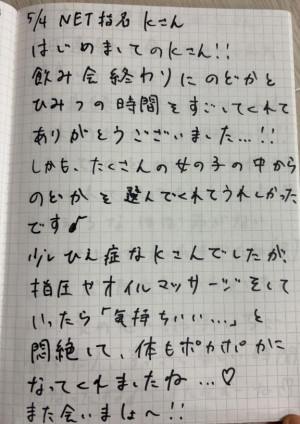 5/4 NET指名 Kさん
はじめましてのKさん!!
飲み会終わりにのどかと
ひみつの時間をすごしてくれて
ありがとうございました…!!
しかも、たくさんの女の子の中から
のどかを選んでくれてうれしかった
です♪
少しひえ症なKさんでしたが、
指圧やオイルマッサージをして
いったら「気持ちいい…」と
悶絶して、体もポカポカに
なってくれましたね…♡
また会いましょ〜!!